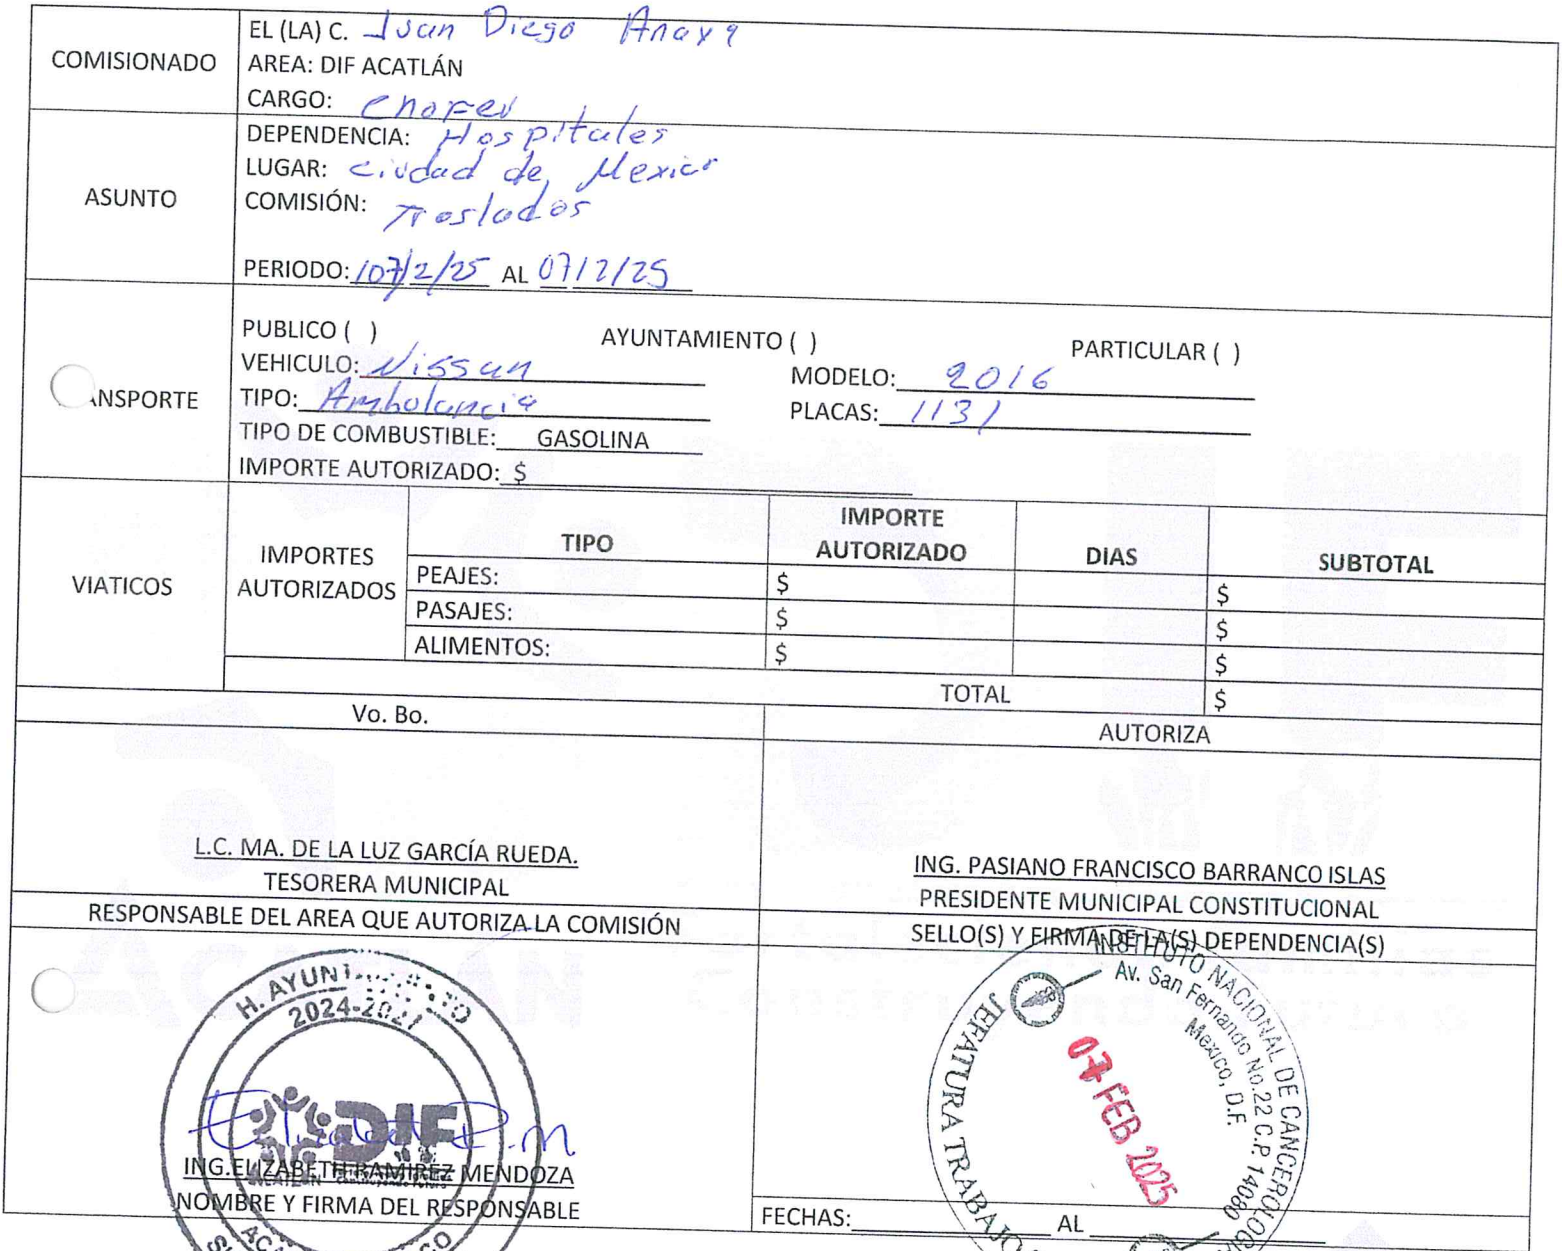 COMISIONADO
EL (LA) C. Juan Diego Anaya
AREA: DIF ACATLÁN
CARGO: Chofer
ASUNTO
DEPENDENCIA: Hospitales
LUGAR: Ciudad de Mexico
COMISIÓN: Traslados
PERIODO: 07/2/25 AL 07/2/25
NSPORTE
PUBLICO ( ) AYUNTAMIENTO ( ) PARTICULAR ( )
VEHICULO: Nissan MODELO: 2016
TIPO: Ambulancia PLACAS: 1131
TIPO DE COMBUSTIBLE: GASOLINA
IMPORTE AUTORIZADO: $
VIATICOS
IMPORTES AUTORIZADOS
TIPO IMPORTE AUTORIZADO DIAS SUBTOTAL
PEAJES: $ $
PASAJES: $ $
ALIMENTOS: $ $
TOTAL $
Vo. Bo. AUTORIZA
L.C. MA. DE LA LUZ GARCÍA RUEDA.
TESORERA MUNICIPAL
ING. PASIANO FRANCISCO BARRANCO ISLAS
PRESIDENTE MUNICIPAL CONSTITUCIONAL
RESPONSABLE DEL AREA QUE AUTORIZA LA COMISIÓN
SELLO(S) Y FIRMA DE LA(S) DEPENDENCIA(S)
H. AYUNT
2024-2027
DIF
ACATLÁN
ING.ELIZABETH RAMIREZ MENDOZA
NOMBRE Y FIRMA DEL RESPONSABLE
INSTITUTO NACIONAL DE CANCEROLOGIA
Av. San Fernando No.22 C.P. 14080
Mexico, D.F.
JEFATURA TRABAJO
07 FEB 2025
FECHAS: AL